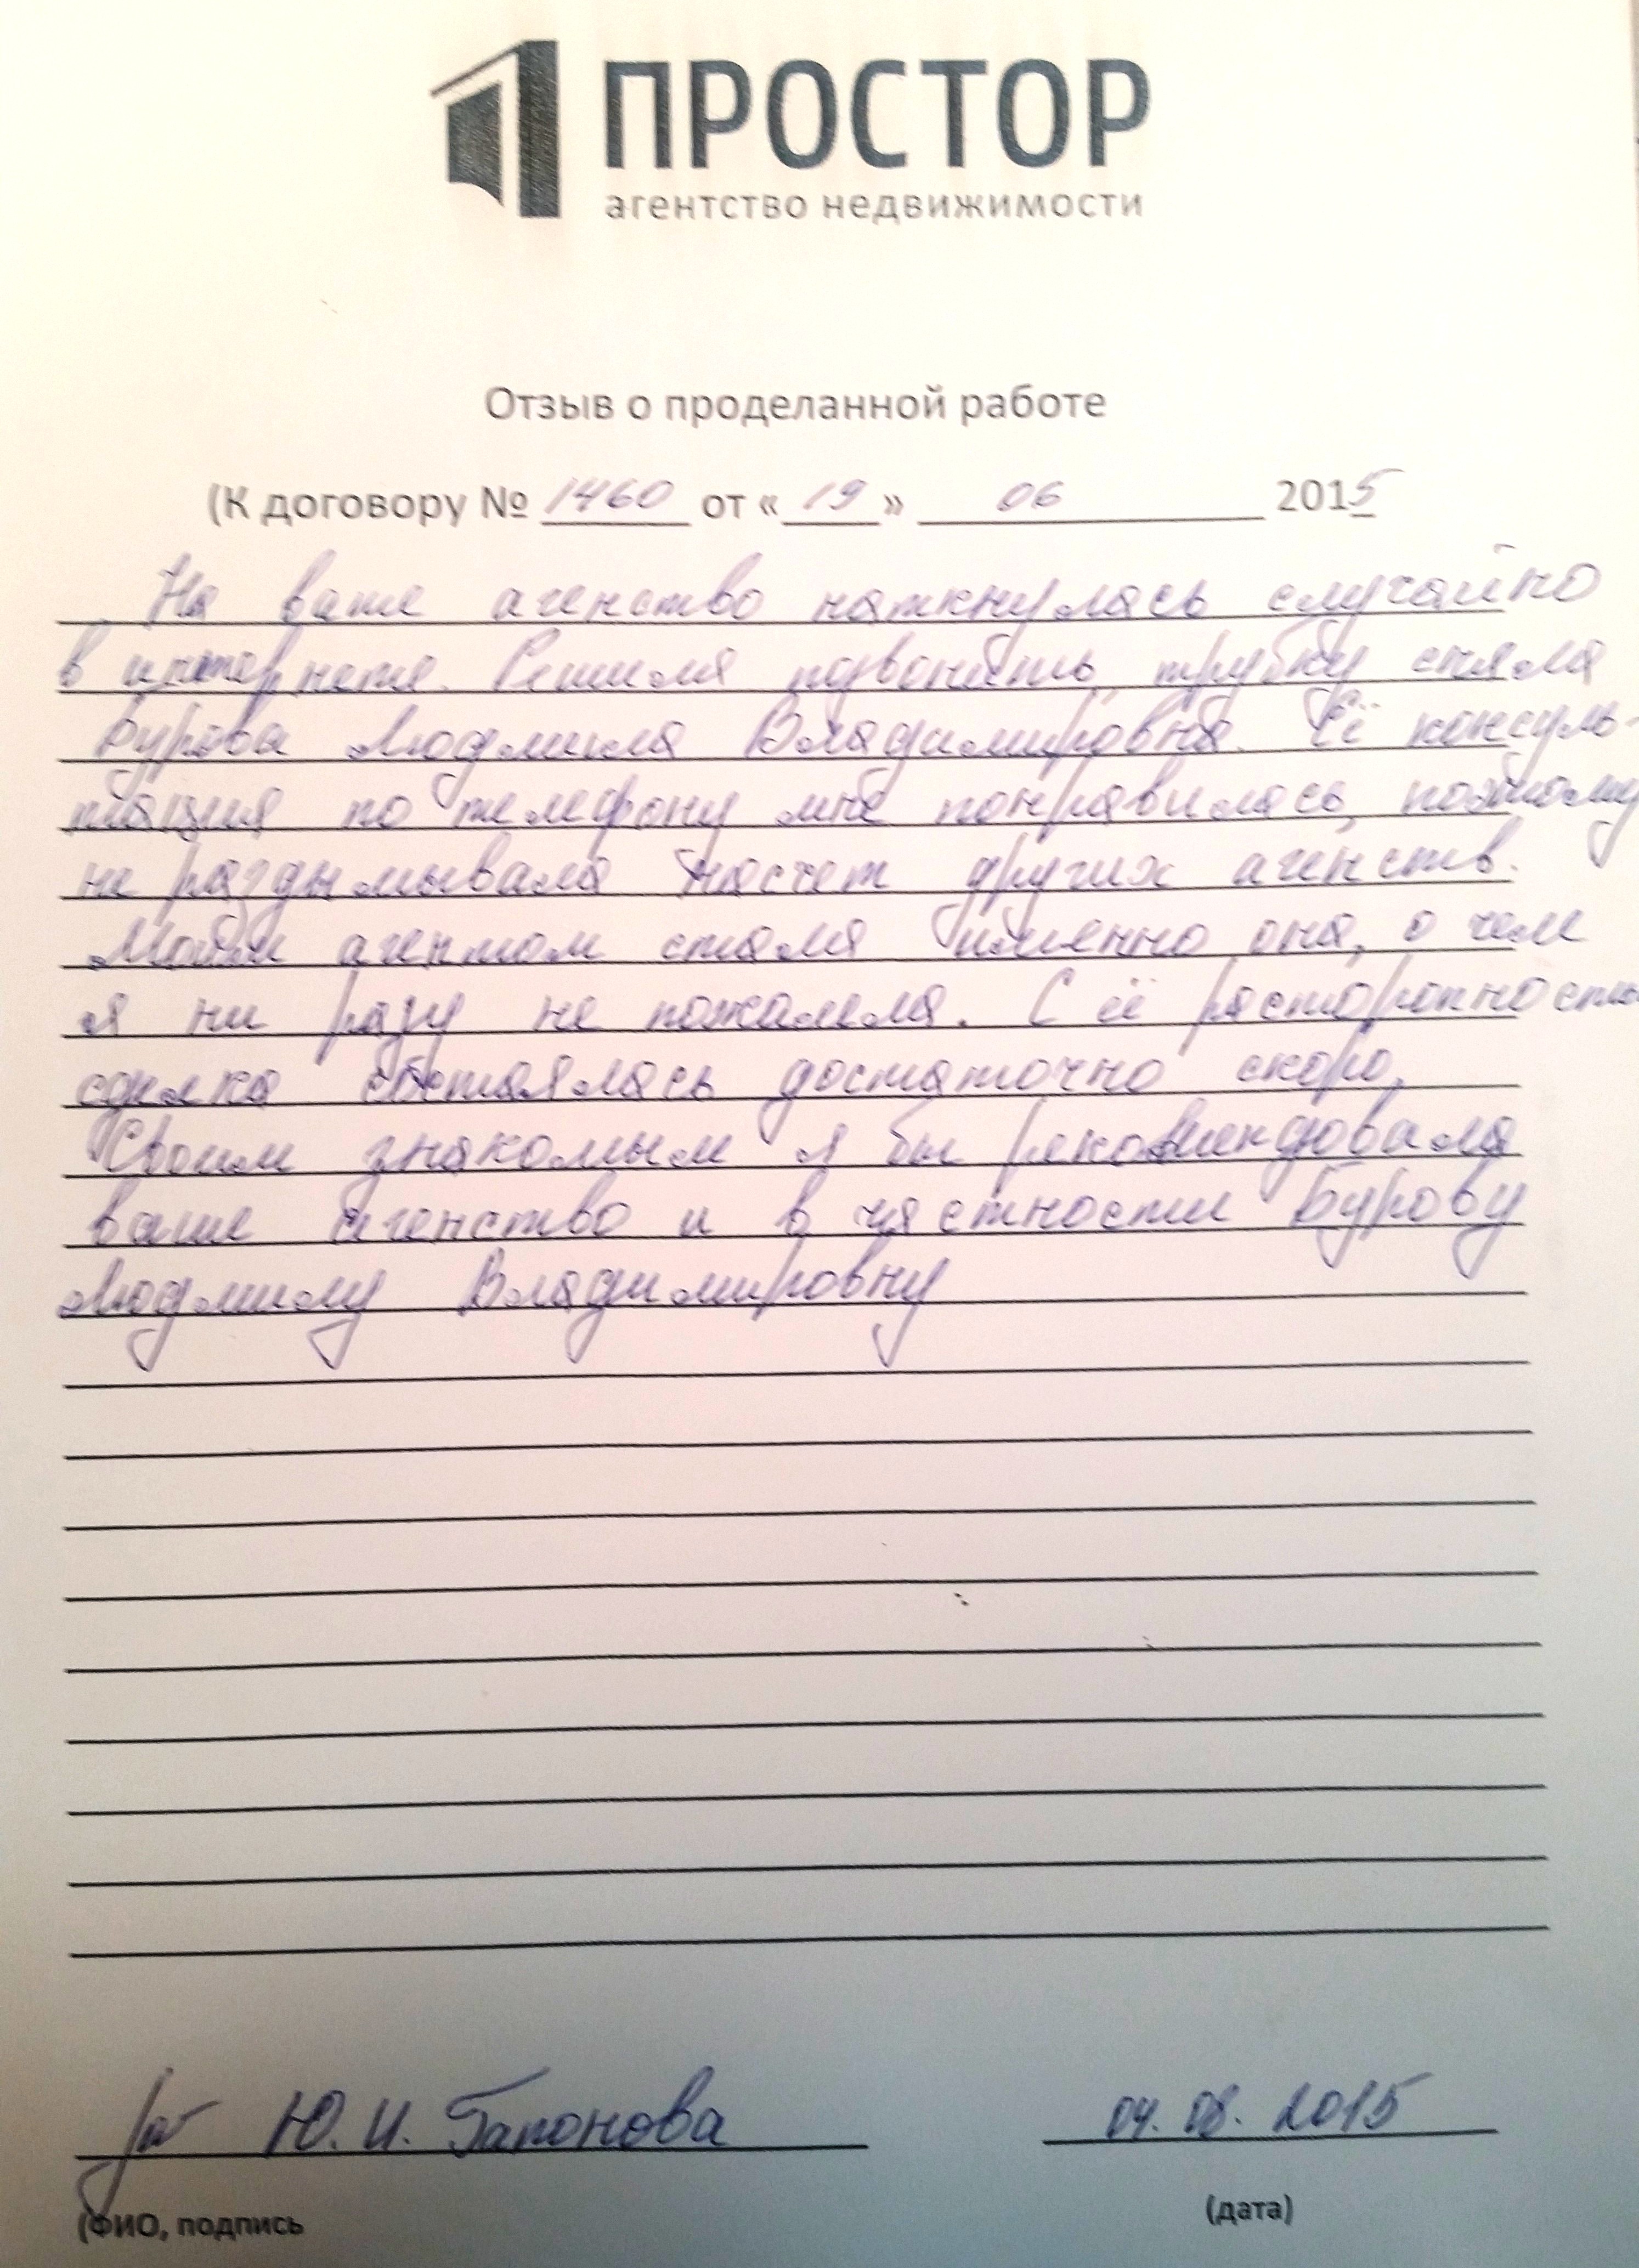 ПРОСТОР
агентство недвижимости
Отзыв о проделанной работе
(К договору № 1460 от « 19 » 06 2015
На ваше агенство наткнулась случайно
в интернете. Решила позвонить, трубку сняла
Бурова Людмила Владимировна. Её консуль-
тация по телефону мне понравилась, поэтому
не раздымывала насчет других агенств.
Моим агентом стала именно она, о чем
я ни разу не пожалела. С её расторопностью
сделка состоялась достаточно скоро.
Своим знакомым я бы рекомендовала
ваше агенство и в частности Бурову
Людмилу Владимировну
Ю. И. Гапонова 04. 08. 2015
(ФИО, подпись (дата)